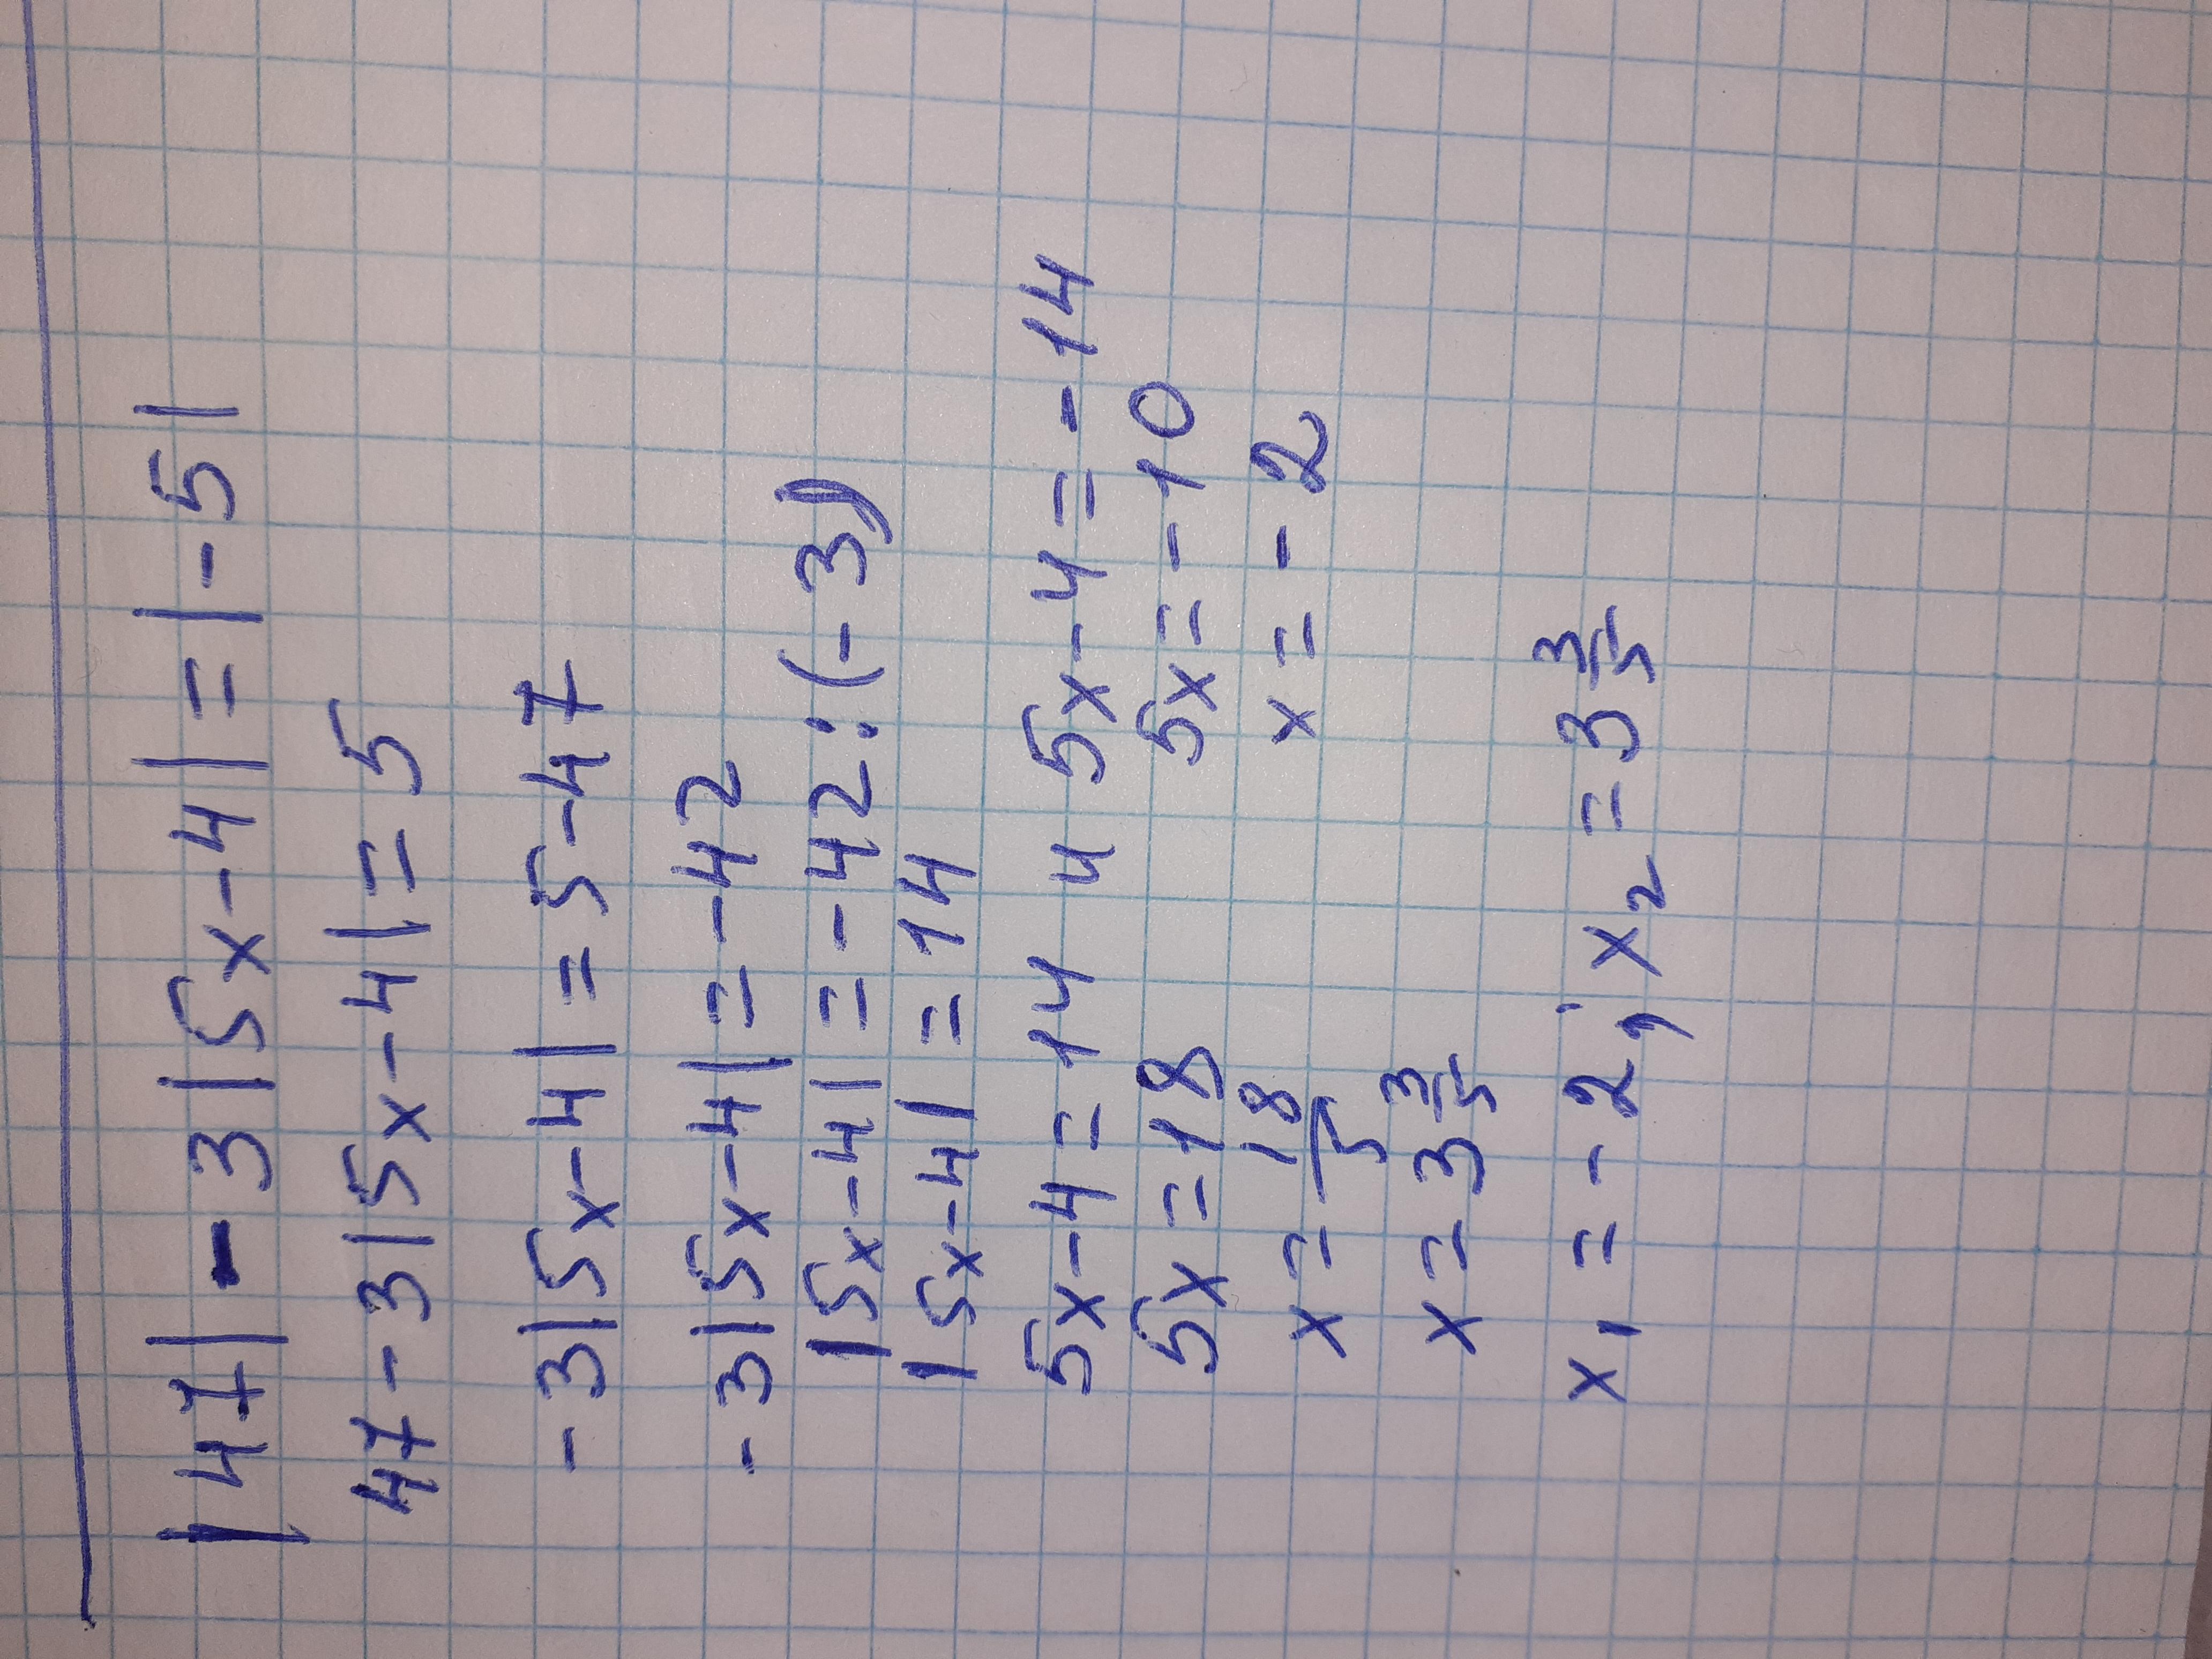 |47| - 3|5x-4| = |-5|
47 - 3|5x-4| = 5
-3|5x-4| = 5-47
-3|5x-4| = -42
|5x-4| = -42:(-3)
|5x-4| = 14
5x-4=14 и 5x-4=-14
5x=18 5x=-10
x=18/5 x=-2
x=3 3/5
x₁=-2; x₂=3 3/5